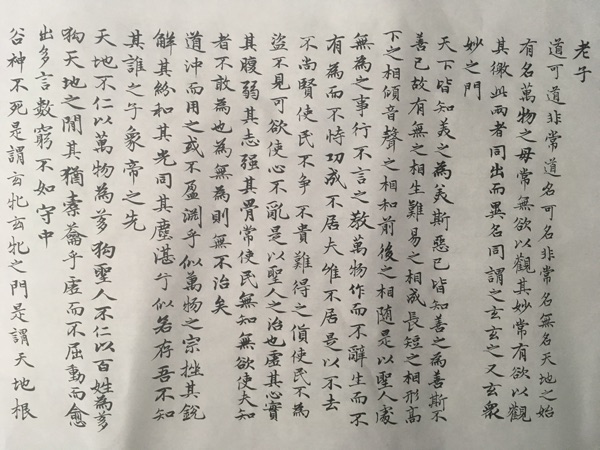 老子
道可道非常道名可名非常名無名天地之始
有名萬物之母常無欲以觀其妙常有欲以觀
其徼此兩者同出而異名同謂之玄玄之又玄衆
妙之門
天下皆知美之為美斯惡已皆知善之為善斯不
善已故有無之相生難易之相成長短之相形高
下之相傾音聲之相和前後之相隨是以聖人處
無為之事行不言之教萬物作而不辭生而不
有為而不恃功成不居夫惟不居是以不去
不尚賢使民不爭不貴難得之貨使民不為
盜不見可欲使心不亂是以聖人之治也虛其心實
其腹弱其志强其骨常使民無知無欲使夫知
者不敢為也為無為則無不治矣
道沖而用之或不盈淵乎似萬物之宗挫其銳
解其紛和其光同其塵湛兮似若存吾不知
其誰之子象帝之先
天地不仁以萬物為芻狗聖人不仁以百姓為芻
狗天地之間其猶橐籥乎虛而不屈動而愈
出多言數窮不如守中
谷神不死是謂玄牝玄牝之門是謂天地根